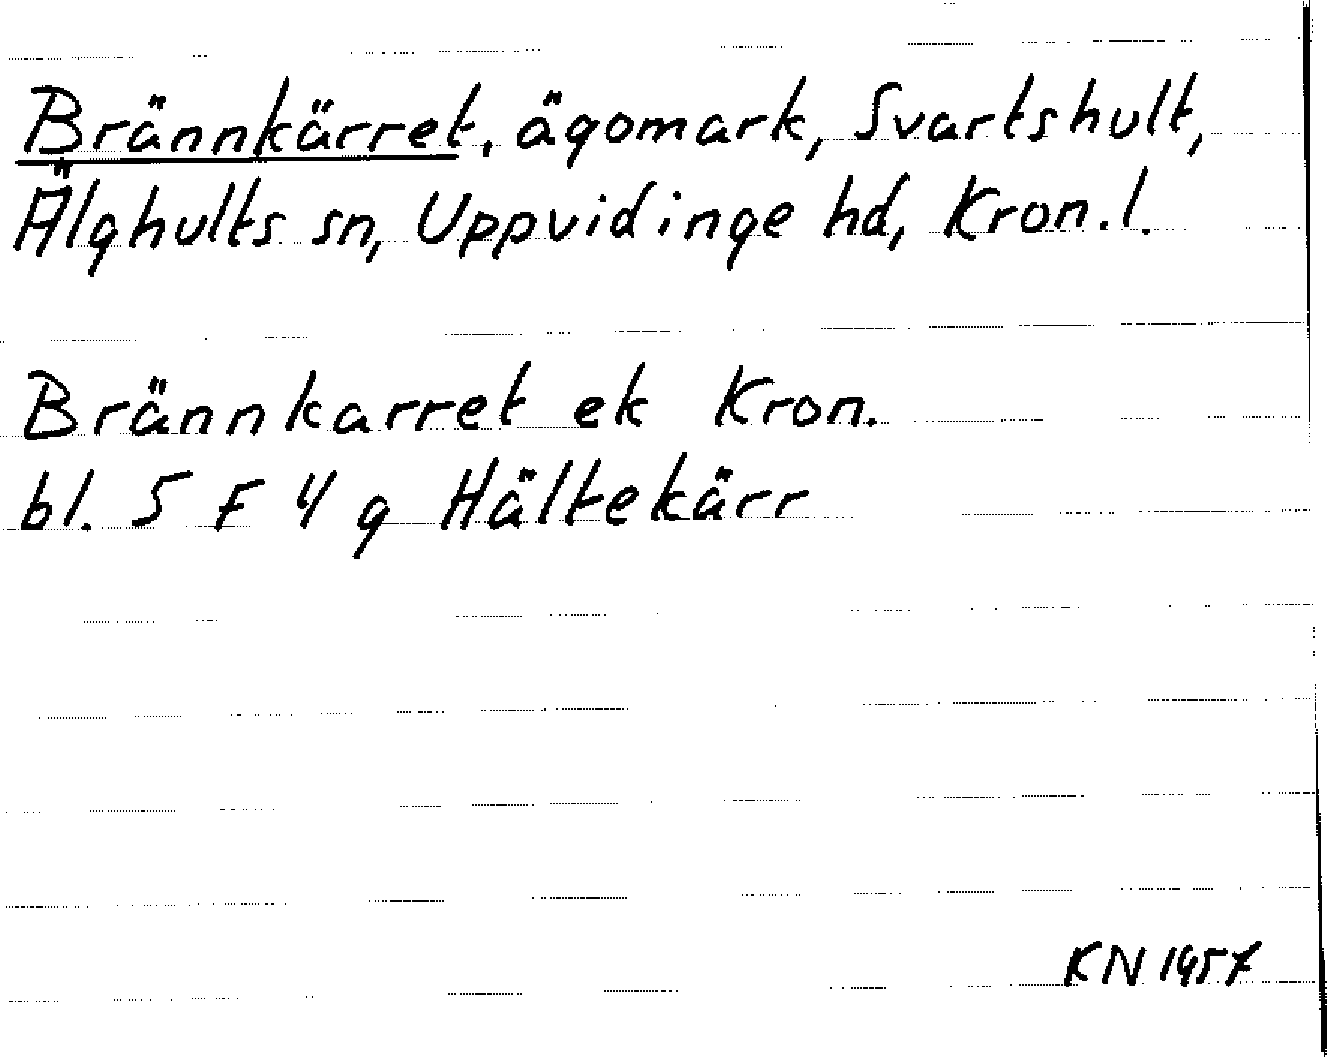 Brännkärret, ägomark, Svartshult,
Älghults sn, Uppvidinge hd, Kron. l.
Brännkarret ek Kron.
bl. 5 F 4 g Hältekärr
KN 1957